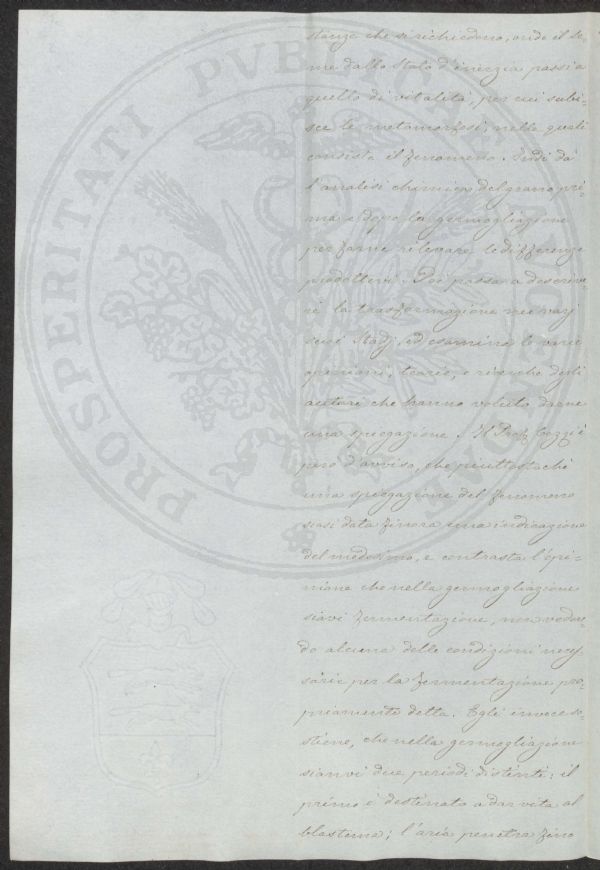 PROSPERITATI PVBLICAE AVGENDAE
stanze che si richiedono, onde il se-
me dallo stato d'inerzia passi a
quello di vitalità, per cui subi-
sce le metamorfosi, nelle quali
consiste il fenomeno. Indi dà
l'analisi chimica del grano pri-
ma e dopo la germogliazione
per farne rilevare le differenze
prodottevi. Poi passa a descrive-
re la trasformazione nei varj
suoi Stadj, ed esamina le varie
opinioni, teorie, e ricerche degli
autori che hanno voluto darne
una spiegazione. Il Prof. Cozzi è
però d'avviso, che piuttosto che
una spiegazione del fenomeno
siasi data finora una indicazione
del medesimo, e contrasta l'opi-
nione che nella germogliazione
siavi fermentazione, non veden-
do alcuna delle condizioni neces-
sarie per la fermentazione pro-
priamente detta. Egli invece so-
stiene, che nella germogliazione
sianvi due periodi distinti; il
primo è destinato a dar vita al
blastema; l'aria penetra fino